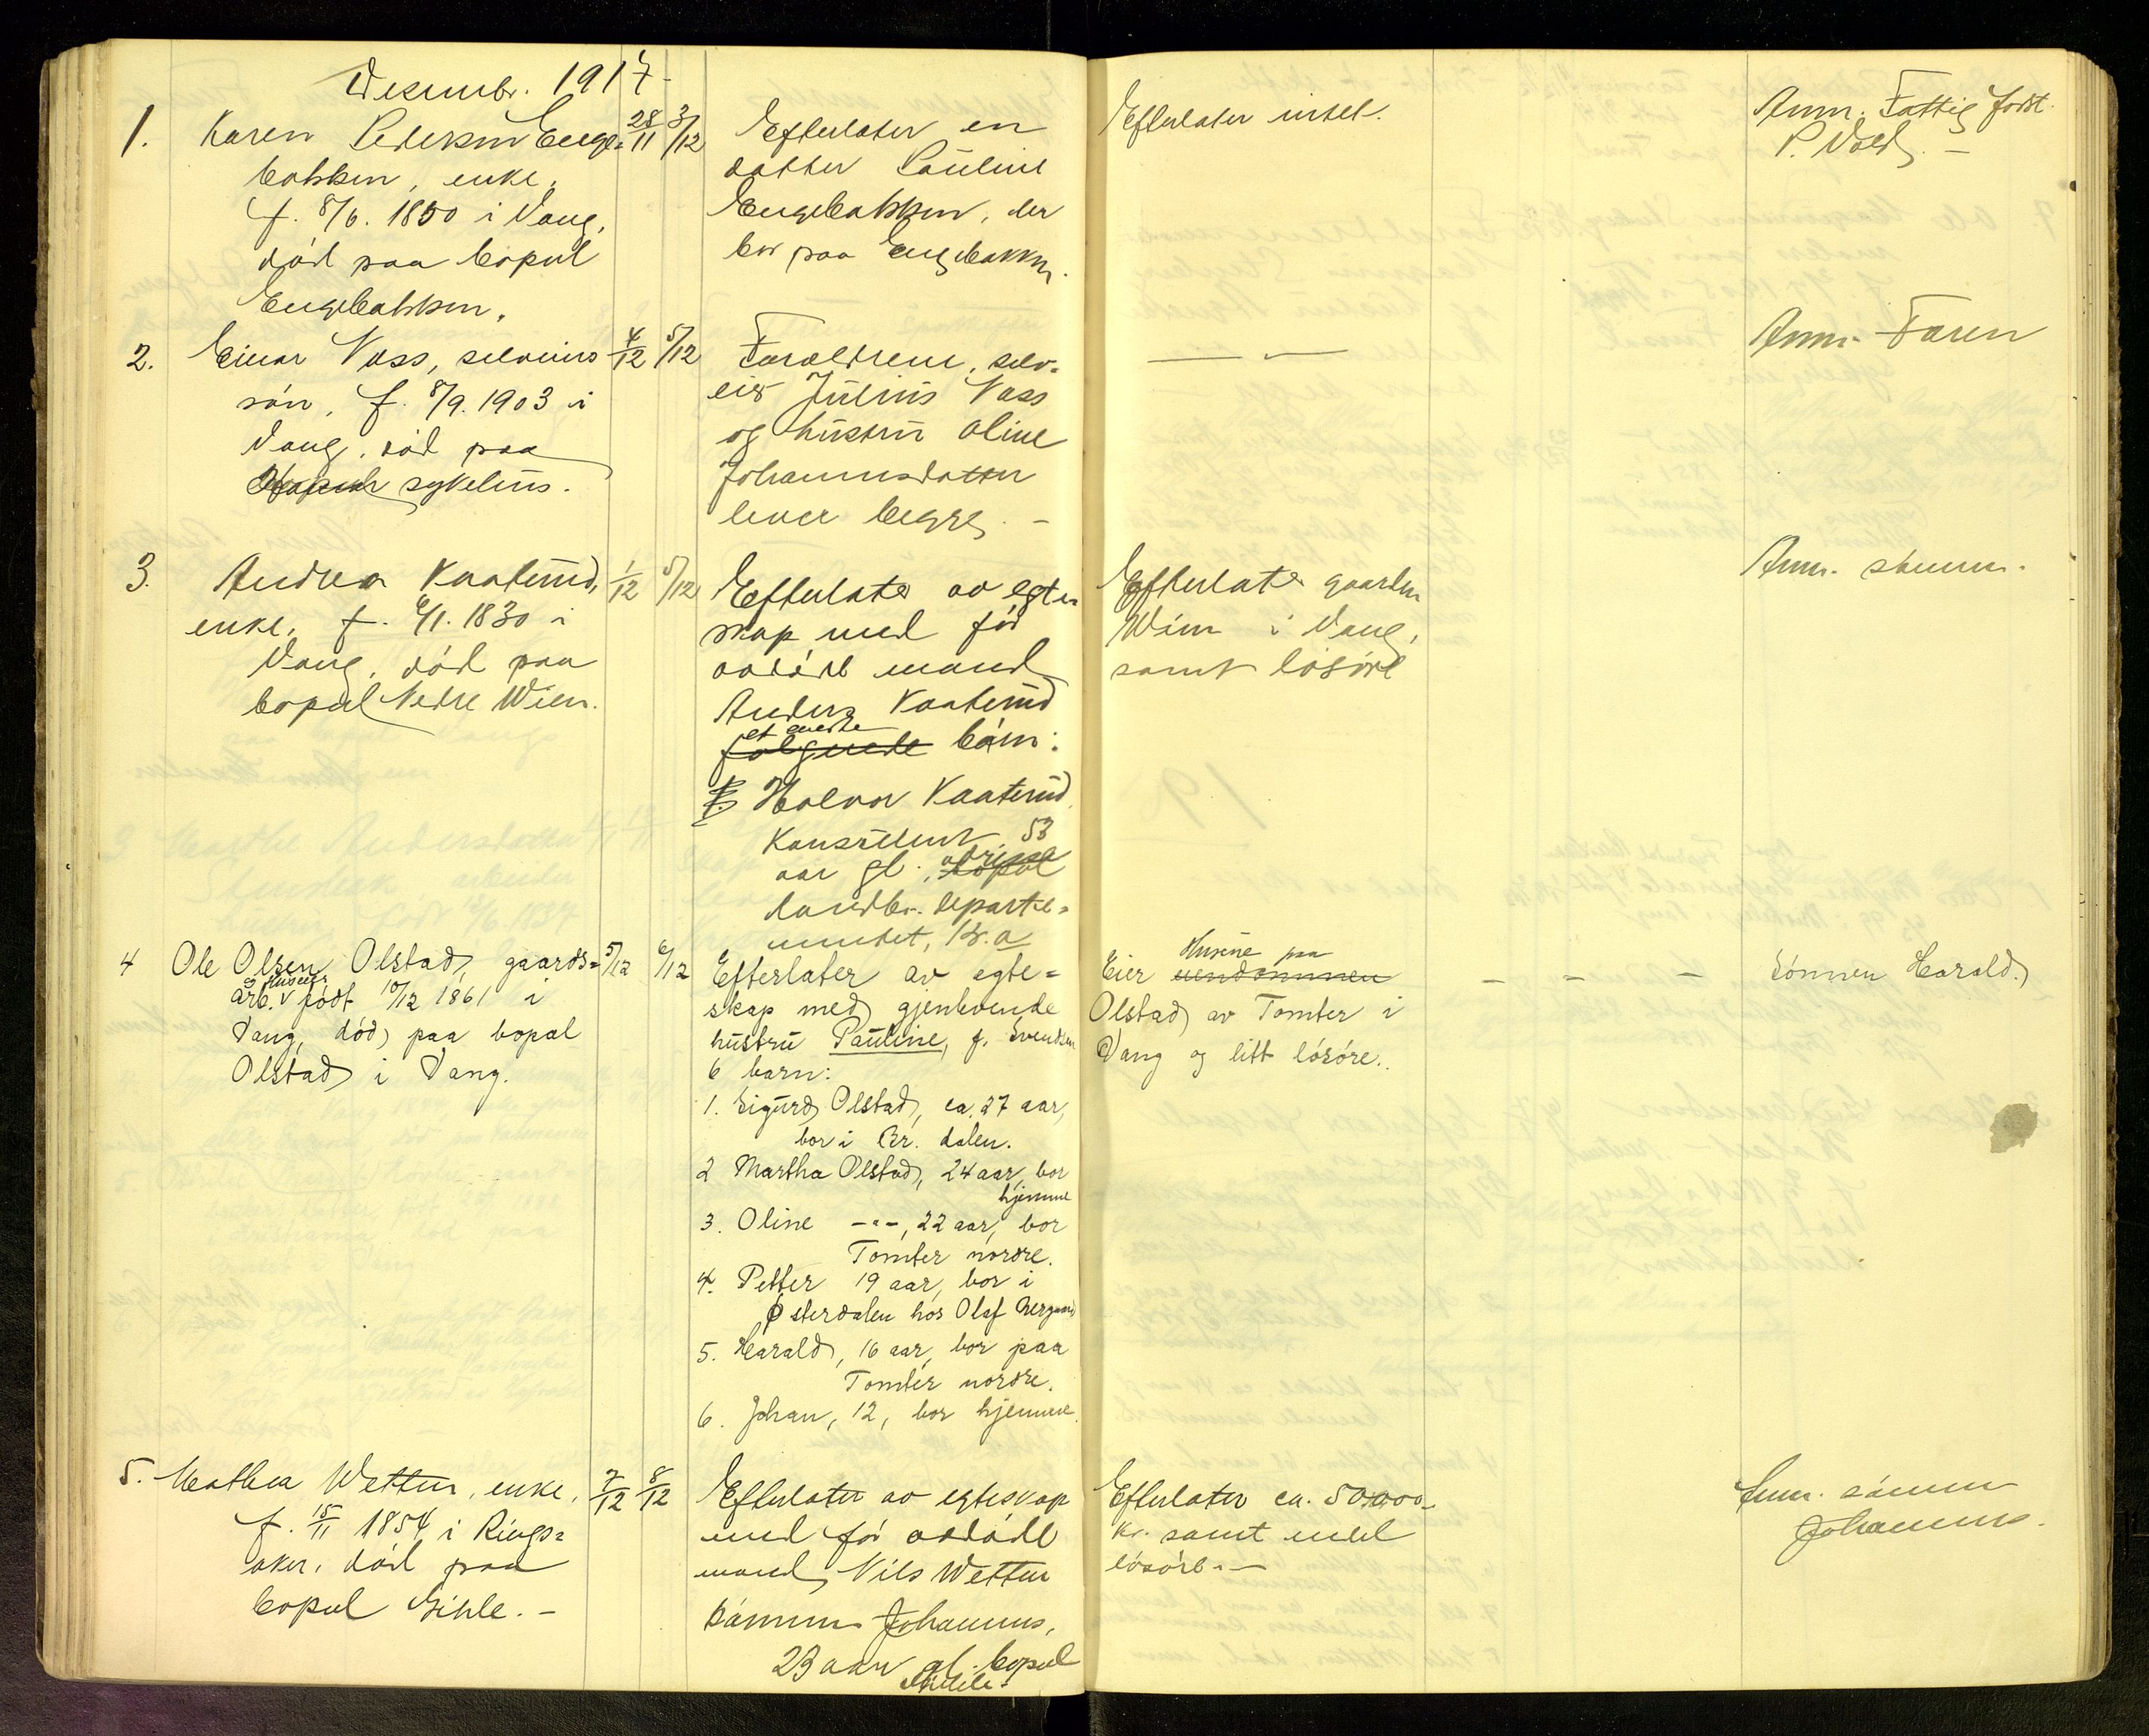 Desembr. 1917
1. Karen Pedersen Enge= 28/11 3/12
bakken, enke,
f. 8/6. 1850 i Vang,
död paa bopæl
Engebakken.
Efterlater en
datter Pauline
Engebakken, der
bor paa Engebakken.
Efterlater intet.
Anm. Fattigforst.
P. Vold. –
2. Einar Vass, selveiers 4/12 5/12
sön, f. 8/9. 1903 i
Vang, död paa
sykehus.
Foreldrene, selv=
eier Julius Vass
og hustru Oline
Johannesdatter
lever begge. –
— " —
Anm. Faren
3. Andrea Kaaterud, 1/12 5/12
enke, f. 6/1. 1830 i
Vang, död paa
bopæl Nedre Wien.
Efterlater av egte
skap med för
avdöde mand
Anders Kaaterud
et eneste
følgende barn:
Halvor Kaaterud
Konsulent 53
aar gl., adresse
bopæl
Landbr. departe=
mentet, Kr.a
Efterlater gaarden
Wien i Vang,
samt lösöre
Anm. sönnen.
4 Ole Olsen Olstad, gaards= 5/12 6/12
og huseier
arb. v født 10/12 1861 i
Vang, död paa bopæl
Olstad i Vang.
Efterlater av egte=
skap med gjenlevende
hustru Pauline, f. Svendsen
6 barn:
1. Sigurd Olstad, ca. 27 aar,
bor i Br. dalen.
2 Martha Olstad, 24 aar, bor
hjemme
3. Oline -"-, 22 aar, bor
Tomter nordre.
4. Petter 19 aar, bor i
Østerdalen hos Olaf Bergund
5. Harald, 16 aar, bor paa
Tomter nordre.
6. Johan, 12, bor hjemme.
Husene paa
Eier eiendommen
Olstad av Tomter i
Vang og litt lösöre.
– – – Sönnen Harald.
5. Mathea Wetten, enke, 7/12 8/12
f. 15/11 1854 i Rings=
aker, död paa
bopæl Gihle. –
Efterlater av egteskap
med för avdöde
mand, Nils Wetten
sönnen Johannes,
23 aar gl. bopæl
Gihle.
Efterlater ca. 50,000
kr. samt endel
lösöre. –
Anm. sönnen
Johannes.